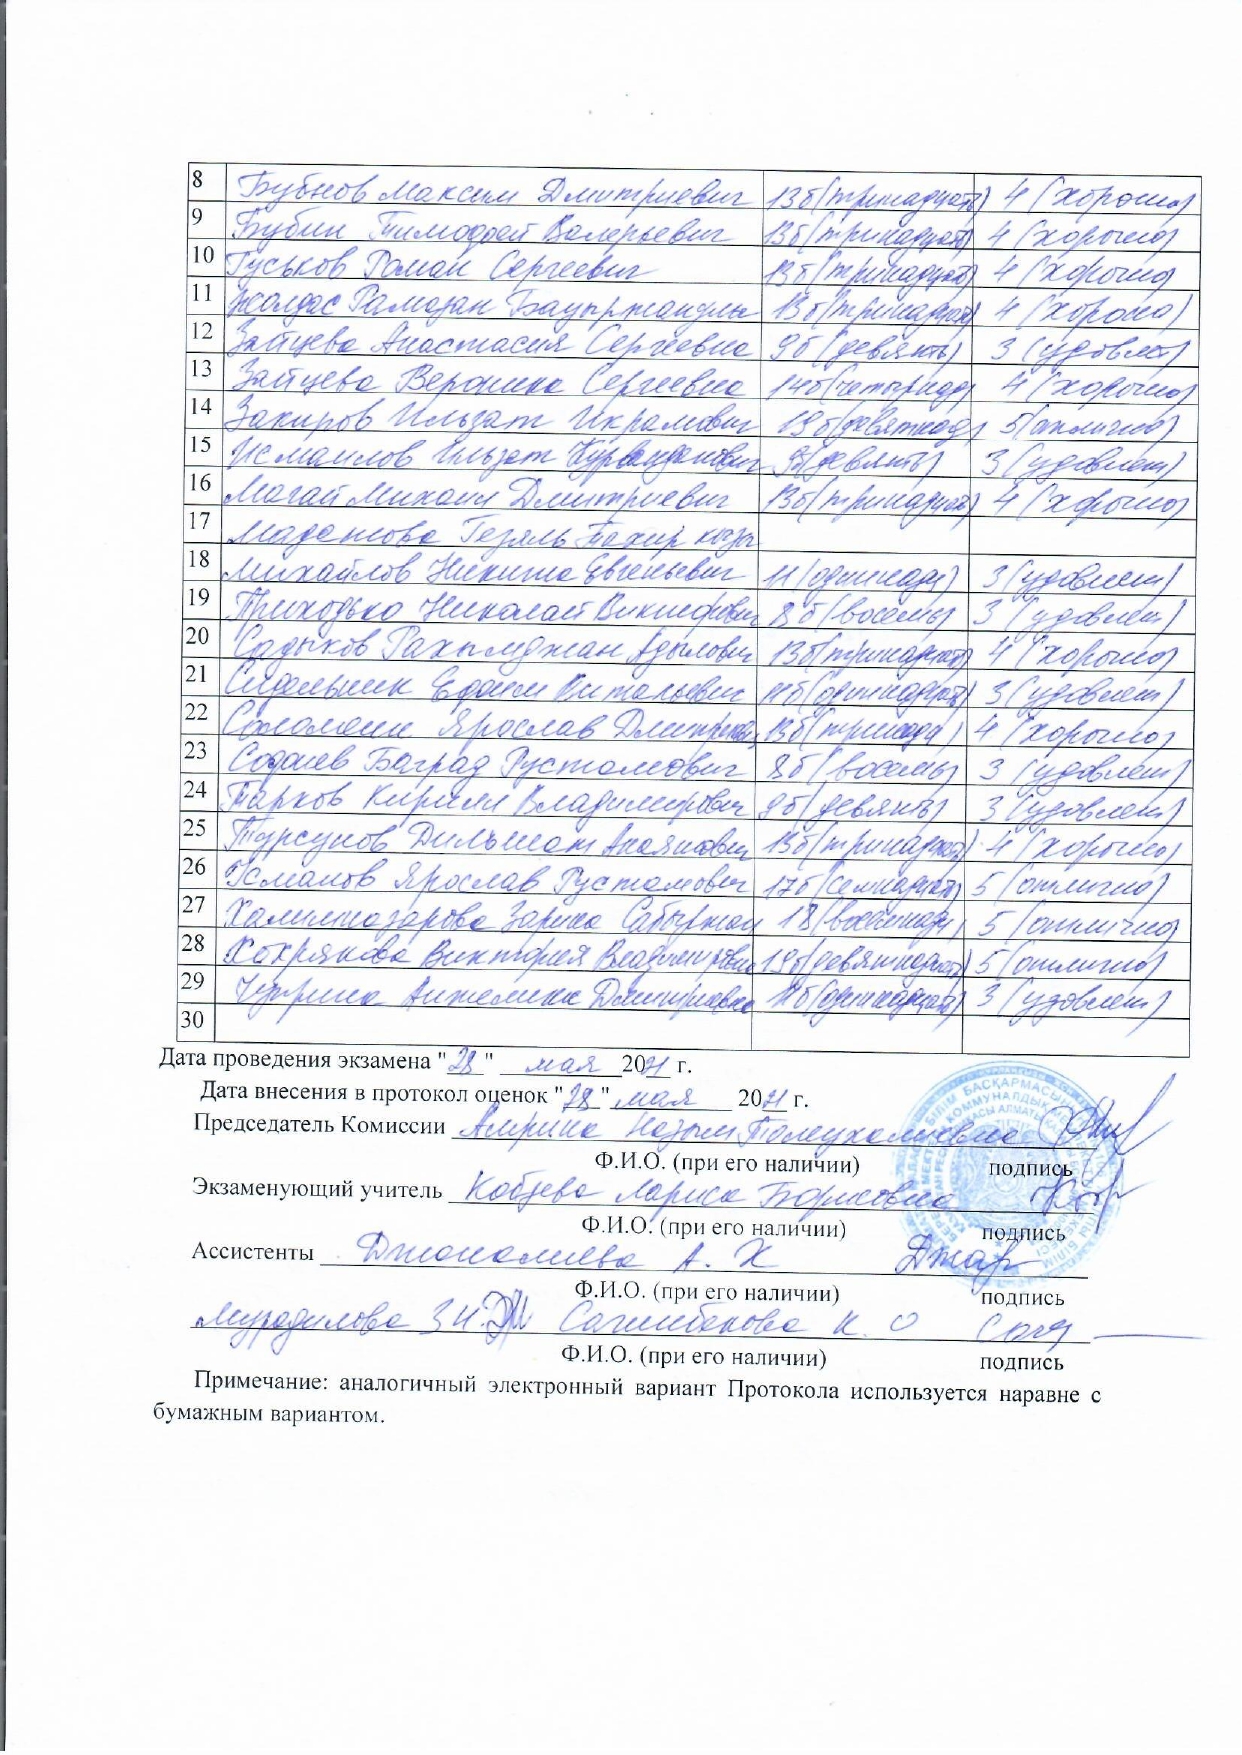 8 Бубнов Максим Дмитриевич 13б(тринадцать) 4 (хорошо)
9 Бубин Тимофей Валерьевич 13б(тринадцат) 4 (хорошо)
10 Гуськов Роман Сергеевич 13б(тринадцат) 4 (хорошо)
11 Жолдас Рамазан Бауыржанулы 13б(тринадцат) 4 (хорошо)
12 Зайцева Анастасия Сергеевна 9б (девять) 3 (удовлет)
13 Зайцева Вероника Сергеевна 14б(четырнад) 4 (хорошо)
14 Закиров Ильзат Икрамович 19б(девятнад) 5(отлично)
15 Исмаилов Ильзат 9б(девять) 3 (удовлет)
16 Магай Михаил Дмитриевич 13б(тринадцат) 4 (хорошо)
17 Гезяль Тахир кызы
18 Михайлов Никита Евгеньевич 11(одиннадц) 3(удовлет)
19 Приходько Николай 8б(восемь) 3 (удовлет)
20 Садыков Рахымджан Адылович 13б(тринадцат) 4 (хорошо)
21 Сидельник Ефим Витальевич 11б(одиннадцат) 3(удовлет)
22 Соломеин Ярослав Дмитриевич 13б(тринад) 4 (хорошо)
23 Баград Рустамович 8б(восемь) 3 (удовлет)
24 Тарков Кирилл Владимирович 9б(девять) 3 (удовлет)
25 Турсунов Дильшат 13б(тринадцат) 4 (хорошо)
26 Усманов Ярослав Рустамович 17б(семнадцат) 5 (отлично)
27 Халилназарова Зарина 18(восемнад) 5 (отлично)
28 Хохрякова Виктория Владимировна 19б(девятнадцат) 5(отлично)
29 Анжелика Дмитриевна 11б(одиннадцат) 3 (удовлет)
30
Дата проведения экзамена "28" мая 2021 г.
Дата внесения в протокол оценок "28" мая 2021 г.
Председатель Комиссии Амрина Назым Толеухамиевна
Ф.И.О. (при его наличии) подпись
Экзаменующий учитель Кобзева Лариса Борисовна
Ф.И.О. (при его наличии) подпись
Ассистенты Джамалиева А. Х
Ф.И.О. (при его наличии) подпись
Мурадилова З И. Сагимбекова К. О
Ф.И.О. (при его наличии) подпись
Примечание: аналогичный электронный вариант Протокола используется наравне с
бумажным вариантом.